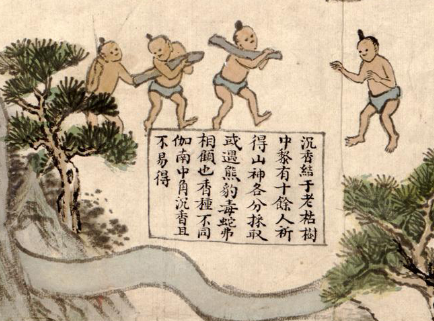 沉香結于老枯樹
中黎有十餘人祈
得山神各分採取
或遇熊豹毒蛇弗
相顧也香種不同
伽南中角沉香且
不易得